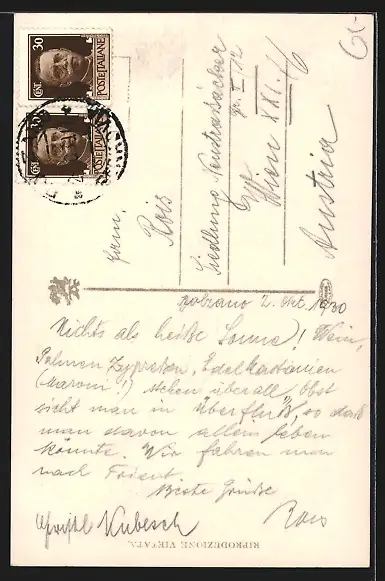 30
CENT.
POSTE ITALIANE
30
CENT.
POSTE ITALIANE
Fam.
Rois
Siedlung Neustrassäcker
Gr. I 12
Wien XXI. /6
Austria
Bolzano 2. Okt. 1930
Nichts als heiße Sonne! Wein,
Palmen Zypressen, Edelkastanien
(Maroni!) stehen überall Obst
sieht man in Überfluß, so daß
man davon allein leben
könnte. Wir fahren nun
nach Trient.
Beste Grüße
Rois
Kubesch
RIPRODUZIONE VIETATA